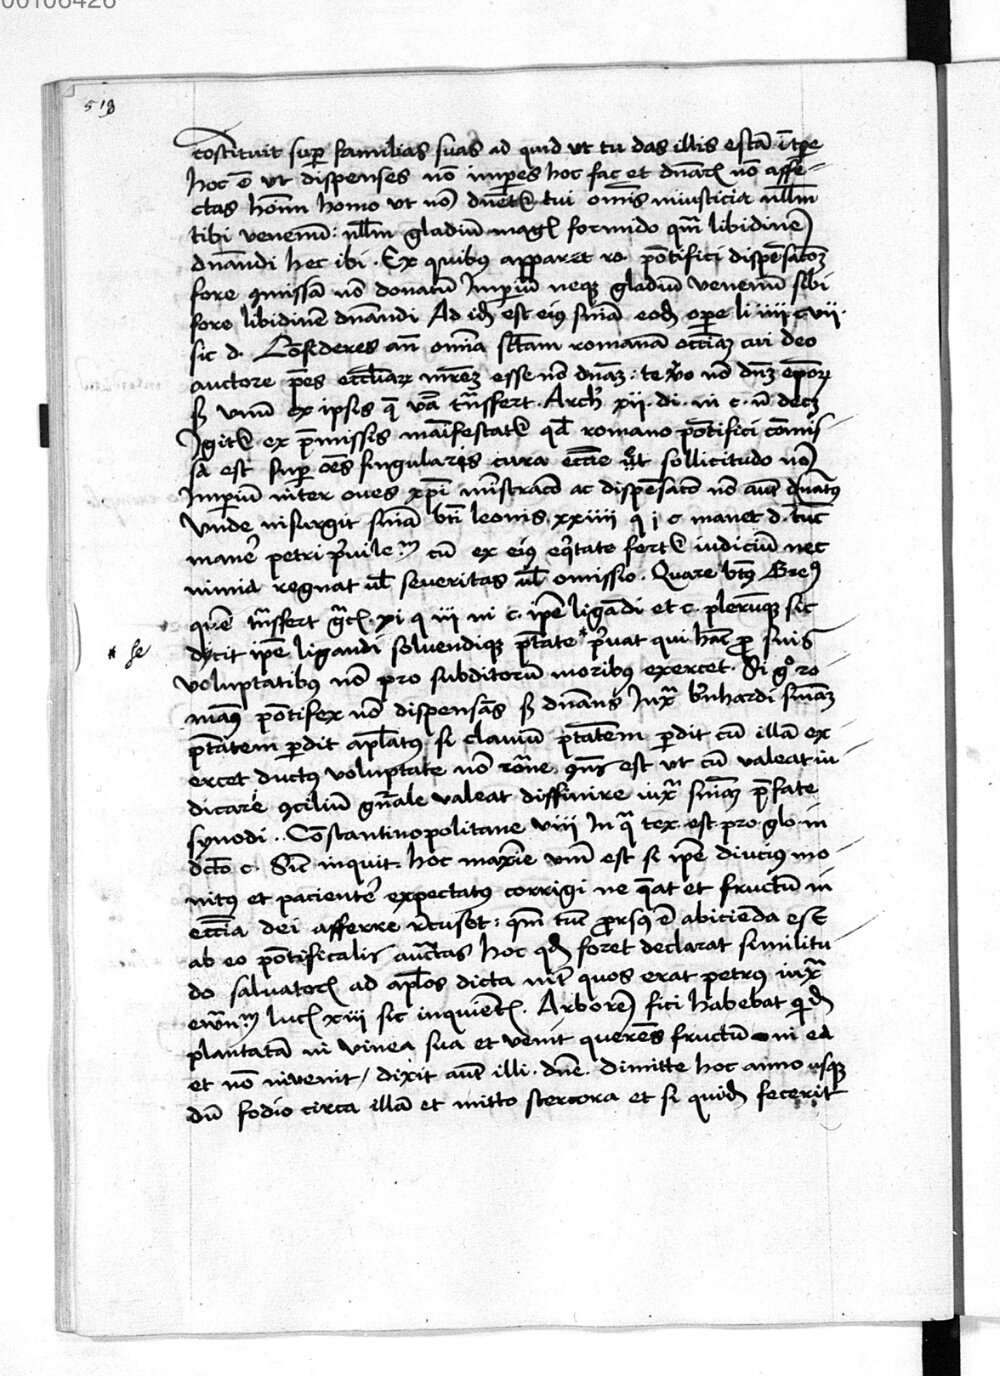 00106426
518
costituit sup familias suas ad quid ut tu das illis escā ī tpe
hoc ē ut dispenses nō imperes hoc fac et dnari nō affe-
ctas hoīm homo ut nō dnet tui omīs iniusticia nllm
tibi venenū: nllm gladiū magis formido qm libidinē
dnandi hec ibi. Ex quibus apparet ro pōtifici dispensacōem
fore cōmissā nō donatū Imperiū neque gladiū venenū sibi
fore libidinē dnandi Ad idem est eius snia eodem opere li iiii c vii
sic d. Cōsideres an omīa sctam romanā eccliam cui deo
auctore pes eccliarum mrem esse nō dnam: te vero nō dnm eporum
s; unū ex ipsis q vā trāsfert Arch xii. di. in c. n dec;
Igitur ex pmissis māifestatur qd romano pōtifici cōmis-
sa est sup oēs singularis cura ecclie ut sollicitudo nō
Imperiū inter oves xpi mistracō ac dispēsacō nō aut dnatus
Unde insurgit snia bti leonis xxiiii q i c manet d. tūc
manere petri pvile cū ex eius eqtate fertur iudiciū nec
nimia regnat ul severitas ul omissio. Quare btus Greg
quē trāsfert xi q iii in c. ipe ligādi et c. plerūque sic
dicit ipe ligandi solvendique ptate * pvat qui hāc p suis
* se
voluptatibus nō pro subditorū moribus exercet. Si go ro-
manus pōtifex nō dispensās s; dnans Juxa bnhardi sniam
ptatem pdit aplatus si claviū ptatem pdit cū illā ex
ercet ductus voluptate nō rōne cōns est ut cū valeat iu
dicare cōciliū gnale valeat diffinire iuxa sniam pfate
synodi. Constantinopolitane viii In q tex. est pro glo in
dcto c. Sic inquit. hoc maxīe unū est si ipe diucius mo
nitus et pacienter expectatus corrigi ne qat et fructū in
ecclia dei afferre recuset: qm tūc prorsus ē abicienda esse
ab eo pōtificalis auctas hoc qd foret declarat similitu
do salvatoris ad aplos dicta inter quos erat petrus iuxa
ewn luce xiii sic inquientis. Arborē fici habebat quidam
plantatā in vinea sua et venit querēs fructū in ea
et nō invenit / dixit aut illi. dne. dimitte hoc anno usque
dū fodio circa illā et mitto stercora et si quidem fecerit